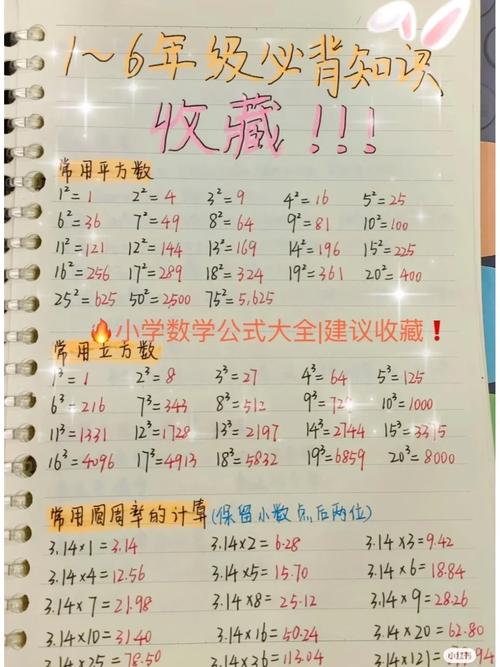 1～6年级必背知识
收藏!!!
常用平方数
1²=1 2²=4 3²=9 4²=16 5²=25
6²=36 7²=49 8²=64 9²=81 10²=100
11²=121 12²=144 13²=169 14²=196 15²=225
16²=256 17²=289 18²=324 19²=361 20²=400
25²=625 50²=2500 75²=5,625
🔥小学数学公式大全|建议收藏❗
常用立方数
1³=1 2³=8 3³=27 4³=64 5³=125
6³=216 7³=343 8³=512 9³=72 10³=1000
11³=1331 12³=1728 13³=2197 14³=2744 15³=3315
16³=4096 17³=4913 18³=5832 19³=6859 20³=8000
常用圆周率的计算(保留小数点后两位)
3.14×1=3.14 3.14×2=6.28 3.14×3=9.42
3.14×4=12.56 3.14×5=15.70 3.14×6=18.84
3.14×7=21.98 3.14×8=25.12 3.14×9=28.26
3.14×10=31.40 3.14×16=50.24 3.14×20=62.80
3.14×25=78.50 3.14×36=113.04 3.14×121=
小红书